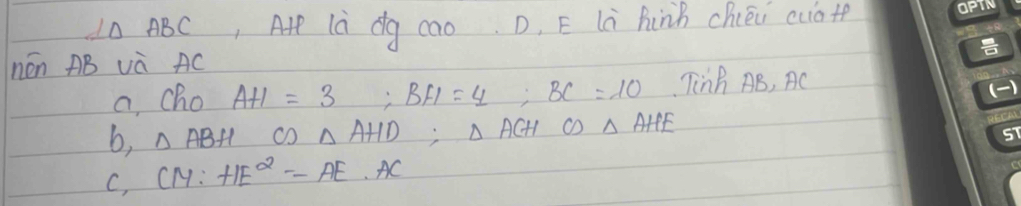 1 Δ ABC , AH là đg cao . D, E là hình chiếu của H
nên AB và AC
a, Cho AH = 3 ; BH = 4 ; BC = 10 . Tính AB, AC
b, Δ ABH ∽ Δ AHD ; Δ ACH ∽ Δ AHE
c, CM: HE² = AE . AC
OPTN
(−)
ST